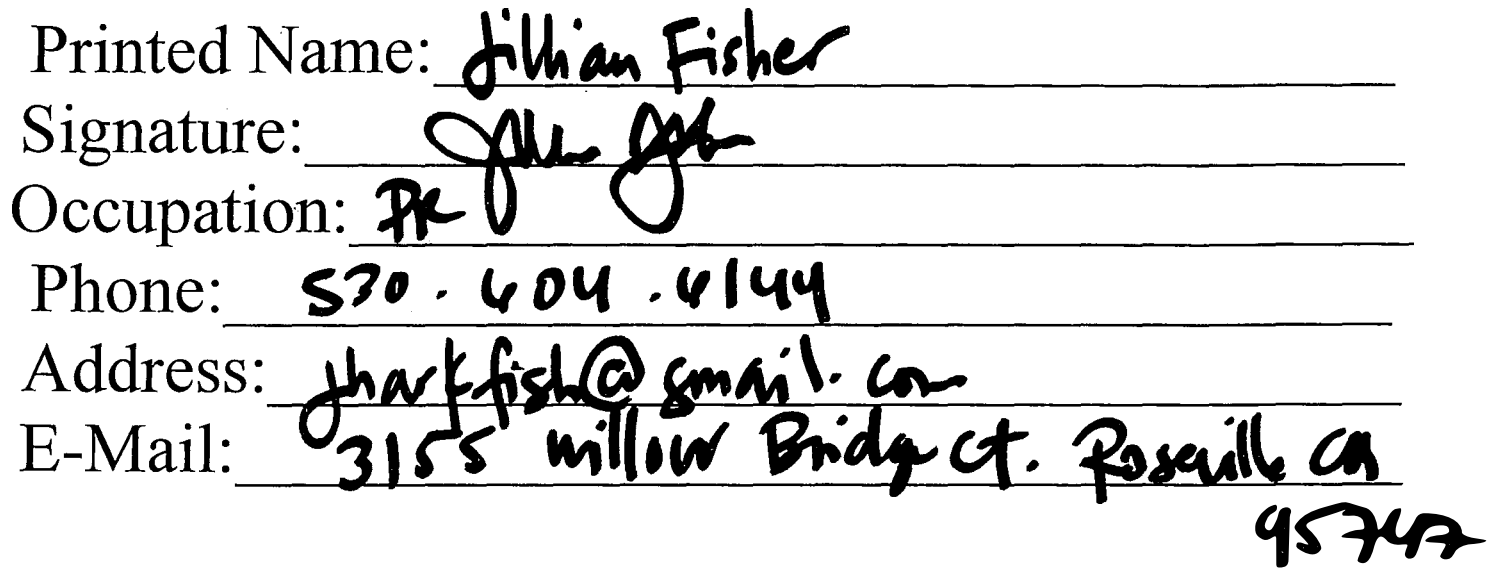 Printed Name: Jillian Fisher
Signature:
Occupation: PR
Phone: 530.604.6144
Address: jharkfish@gmail.com
E-Mail: 3155 Willow Bridge Ct. Roseville CA
95747